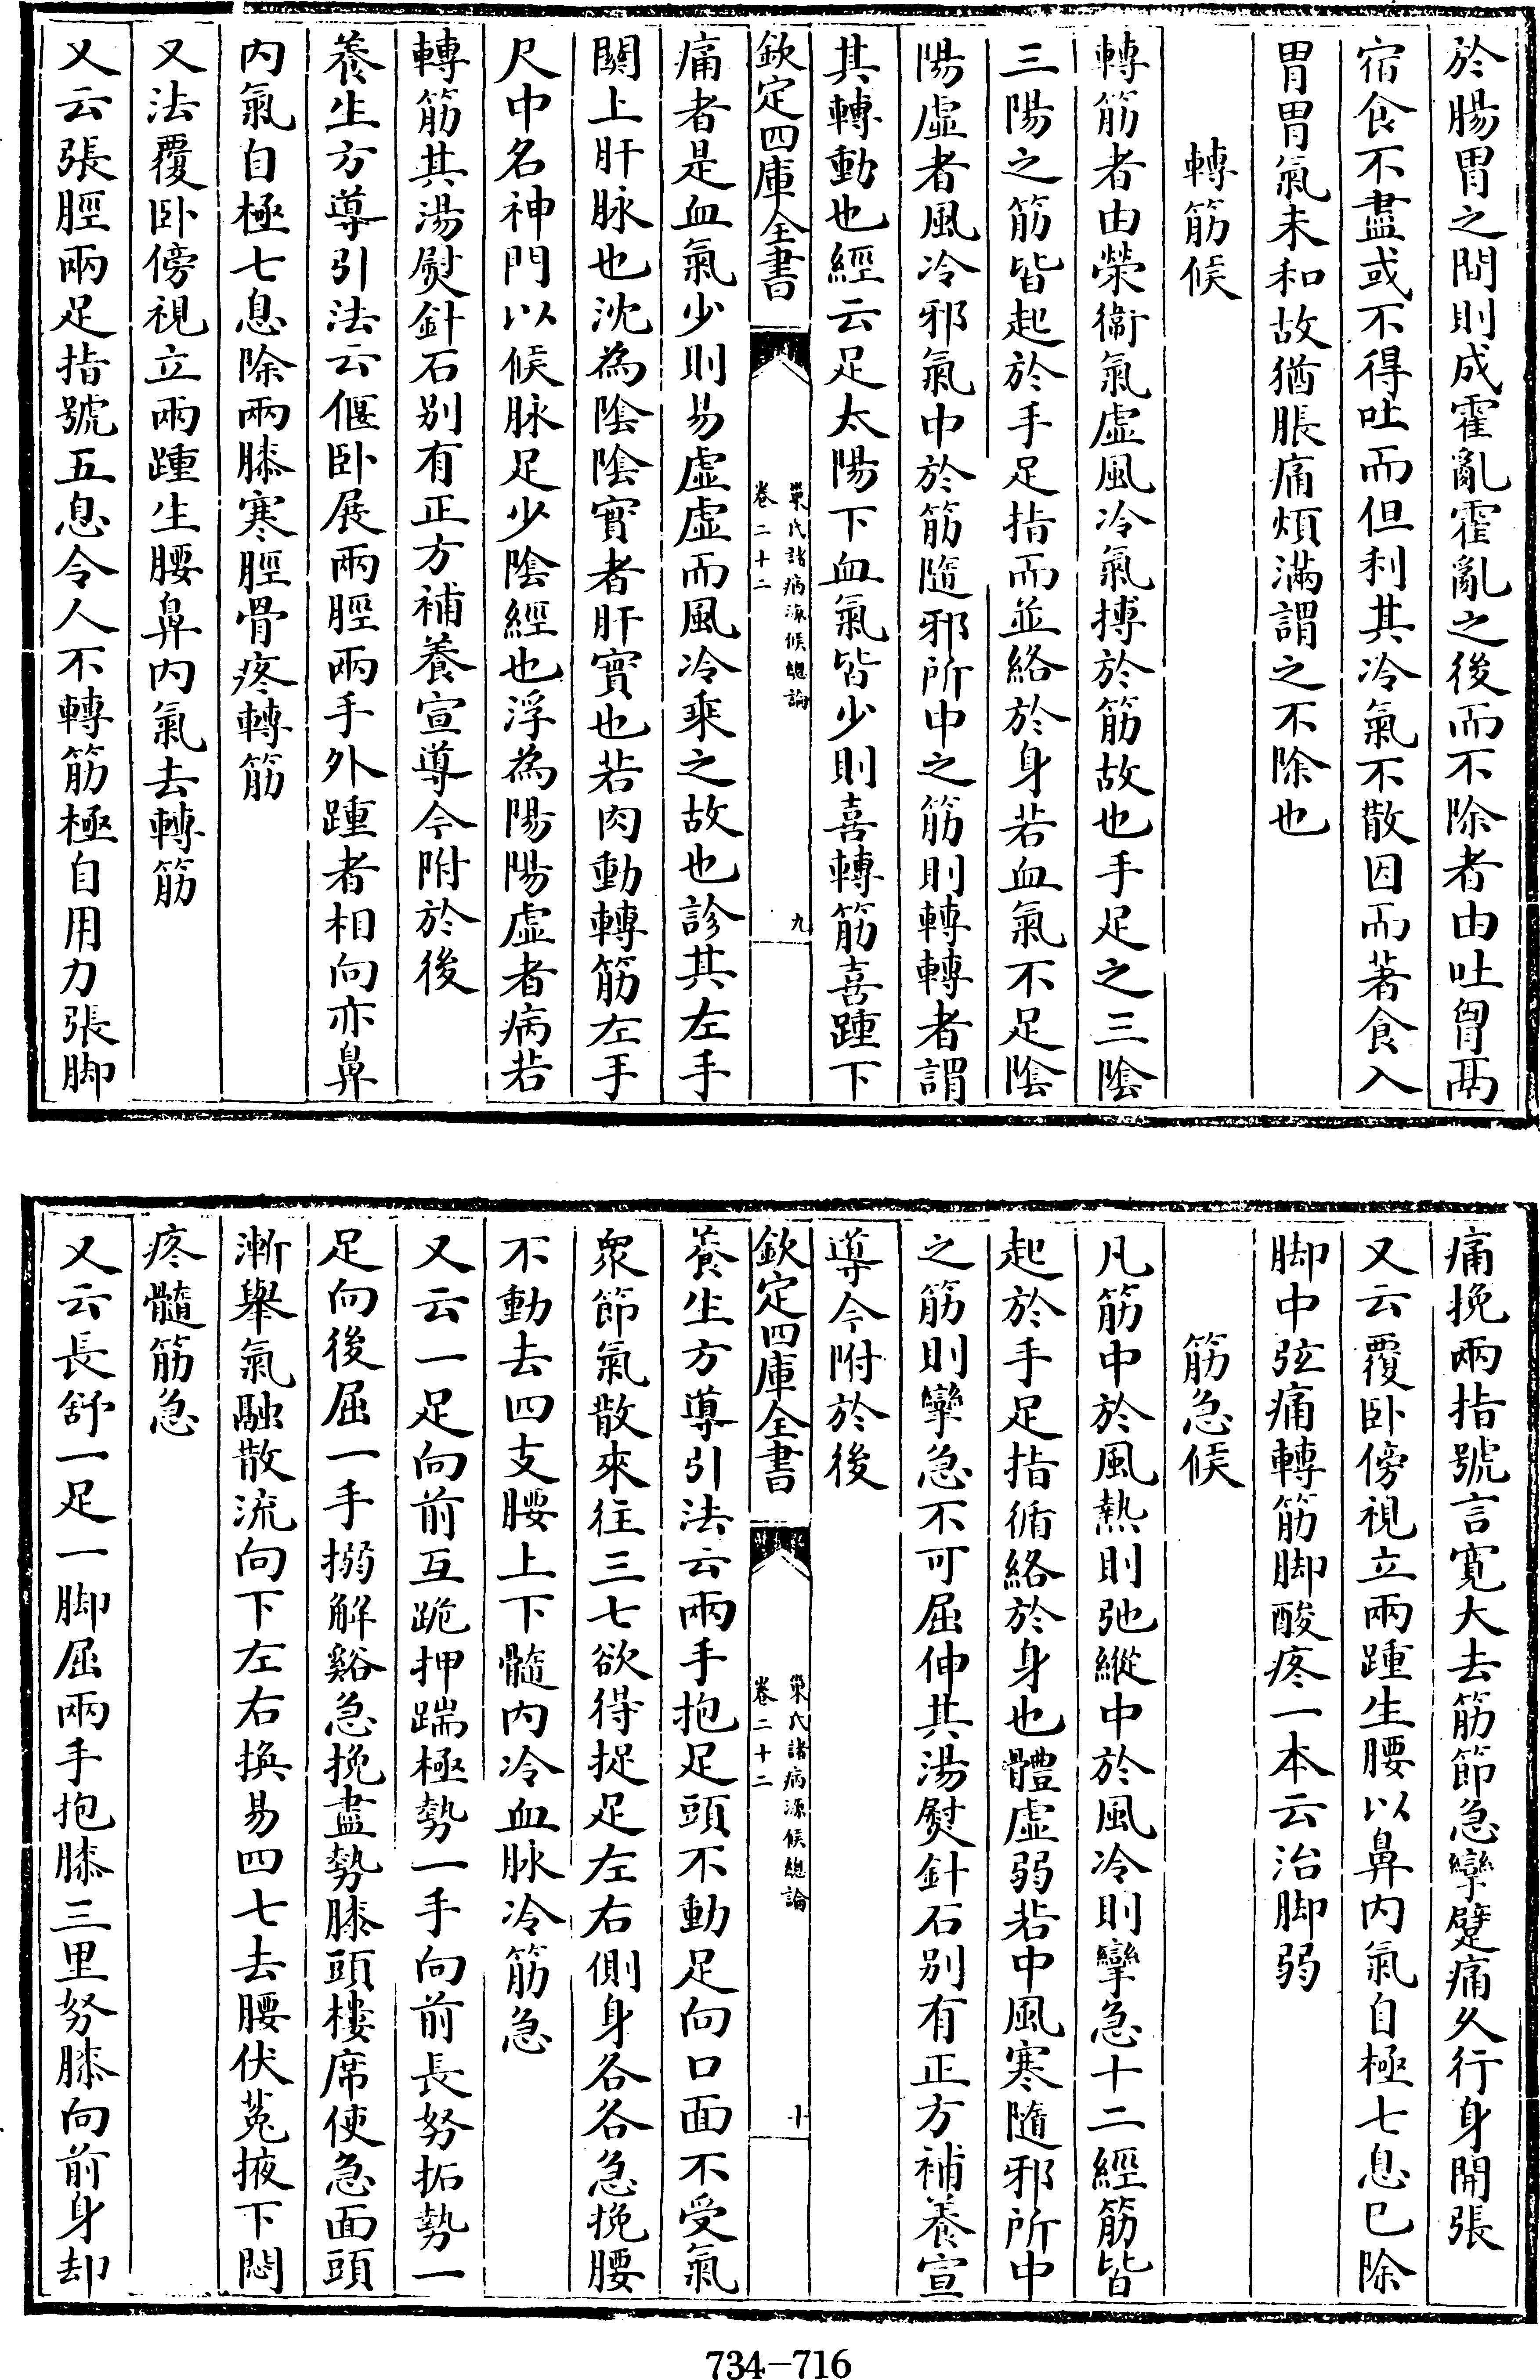 於腸胃之間則成霍亂霍亂之後而不除者由吐胷膈
宿食不盡或不得吐而但利其冷氣不散因而著食入
胃胃氣未和故猶脹痛煩滿謂之不除也
轉筋候
轉筋者由榮衞氣虛風冷氣搏於筋故也手足之三陰
三陽之筋皆起於手足指而並絡於身若血氣不足陰
陽虛者風冷邪氣中於筋隨邪所中之筋則轉轉者謂
其轉動也經云足太陽下血氣皆少則喜轉筋喜踵下
欽定四庫全書
巢氏諸病源候總論
卷二十二
九
痛者是血氣少則易虛虛而風冷乘之故也診其左手
關上肝脉也沈為陰陰實者肝實也若肉動轉筋左手
尺中名神門以候脉足少陰經也浮為陽陽虛者病若
轉筋其湯熨針石别有正方補養宣導今附於後
養生方導引法云偃卧展兩脛兩手外踵者相向亦鼻
内氣自極七息除兩膝寒脛骨疼轉筋
又法覆卧傍視立兩踵生腰鼻内氣去轉筋
又云張脛兩足指號五息令人不轉筋極自用力張脚
痛挽兩指號言寛大去筋節急攣躄痛久行身開張
又云覆卧傍視立兩踵生腰以鼻内氣自極七息已除
脚中弦痛轉筋脚酸疼一本云治脚弱
筋急候
凡筋中於風熱則弛縱中於風冷則攣急十二經筋皆
起於手足指循絡於身也體虛弱若中風寒隨邪所中
之筋則攣急不可屈伸其湯熨針石别有正方補養宣
導今附於後
欽定四庫全書
巢氏諸病源候總論
卷二十二
十
養生方導引法云兩手抱足頭不動足向口面不受氣
衆節氣散來往三七欲得捉足左右側身各各急挽腰
不動去四支腰上下髓内冷血脉冷筋急
又云一足向前互跪押踹極勢一手向前長努拓勢一
足向後屈一手搦解谿急挽盡勢膝頭摟席使急面頭
漸舉氣融散流向下左右換易四七去腰伏菟掖下悶
疼髓筋急
又云長舒一足一脚屈兩手抱膝三里努膝向前身却
734-716